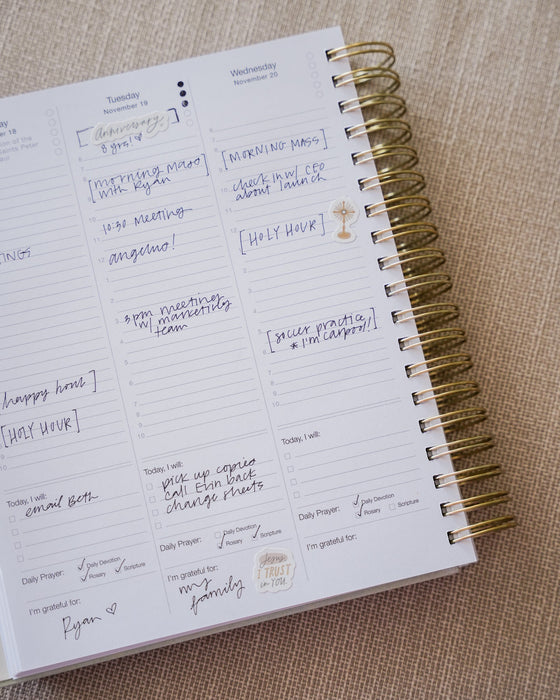 18
Saints Peter
happy hour ]
[HOLY HOUR]
Today, I will:
email Beth
Daily Prayer:
Daily Devotion
Rosary
Scripture
I'm grateful for:
Ryan ♡
Tuesday
November 19
Anniversary
8 yrs! ♡
[morning Mass
with Ryan]
10:30 Meeting
angelus!
3pm meeting
w/ marketing
team
Today, I will:
pick up copies
call Erin back
change sheets
Daily Prayer:
Daily Devotion
Rosary
Scripture
I'm grateful for:
my
family
Jesus
I TRUST
in YOU.
Wednesday
November 20
[MORNING MASS]
check in w/ CEO
about launch
[HOLY HOUR]
[soccer practice
*I'm carpool!]
Today, I will:
Daily Prayer:
Daily Devotion
Rosary
Scripture
I'm grateful for: